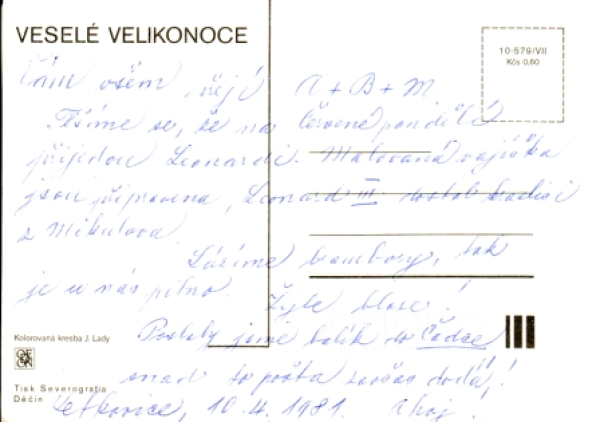 VESELÉ VELIKONOCE
10-579/VII
Kčs 0,60
Vám všem přejí A + B + M
Těšíme se, že na Červené pondělí
přijedou Leonardi. Malovaná vajíčka
jsou připravena, Leonard III. dostal
z Mikulova.
Sázíme brambory, tak
je u nás pilno. Žijte blaze!
Poslaly jsme balík do Čadce
snad to pošta dodá!
10.4.1981. Ahoj.
Kolorovaná kresba J. Lady
Tisk Severografia
Děčín